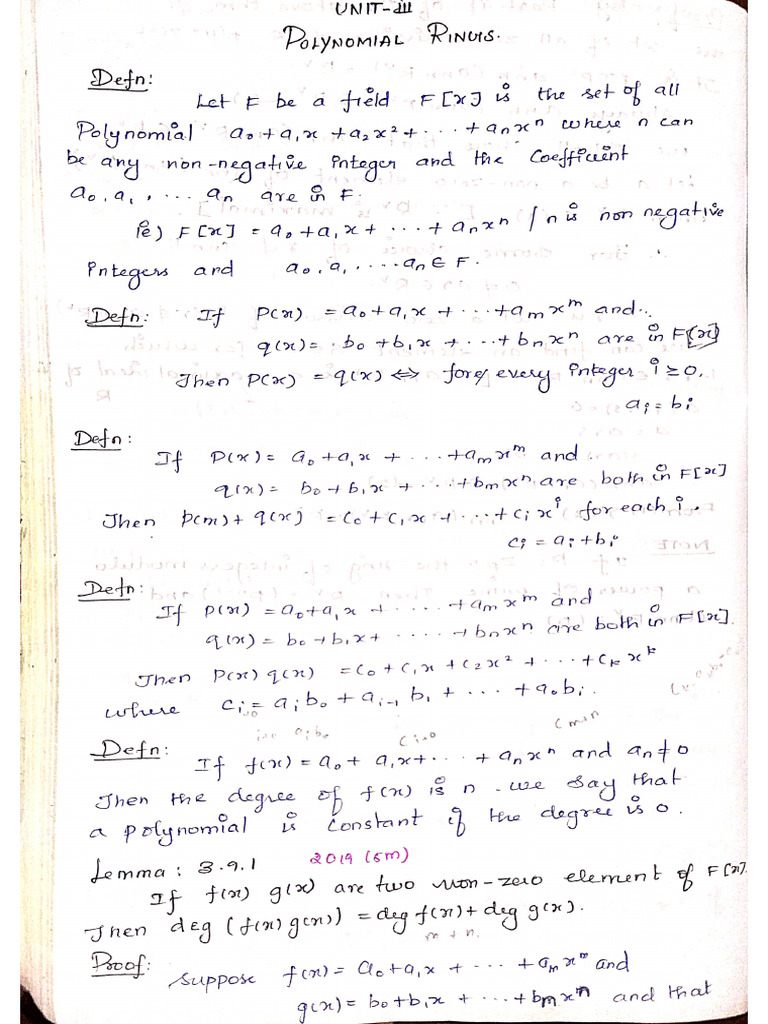 UNIT-III
POLYNOMIAL RINGS.
Defn:
Let F be a field F[x] is the set of all
Polynomial a₀+a₁x+a₂x²+...+aₙxⁿ where n can
be any non-negative integer and the Coefficient
a₀,a₁,...aₙ are in F.
ie) F[x] = a₀+a₁x+...+aₙxⁿ / n is non negative
integers and a₀,a₁.....aₙ ∈ F.
Defn: If P(x) = a₀+a₁x+...+aₘxᵐ and..
q(x) = b₀+b₁x+...+bₙxⁿ are in F[x]
Then P(x) = q(x) ⇔ for every integer i ≥ 0,
aᵢ = bᵢ
Defn:
If P(x) = a₀+a₁x+...+aₘxᵐ and
q(x) = b₀+b₁x+...+bₘxⁿ are both in F[x]
Then P(m)+q(x) = c₀+c₁x+...+cᵢxⁱ for each i.
cᵢ = aᵢ+bᵢ
Defn:
If P(x) = a₀+a₁x+.....+aₘxᵐ and
q(x) = b₀+b₁x+.....+bₙxⁿ are both in F[x].
Then P(x) q(x) = c₀+c₁x+c₂x²+...+cₖxᵏ
where cᵢ = aᵢb₀+aᵢ₋₁b₁+...+a₀bᵢ.
i=0 aᵢb₀ Ci=0 Cm+n
Defn:
If f(x) = a₀+a₁x+...+aₙxⁿ and aₙ≠0
Then the degree of f(x) is n. we say that
a polynomial is constant if the degree is 0.
Lemma: 3.9.1 2019 (5m)
If f(x) g(x) are two non-zero element of F[x].
Then deg (f(x)g(x)) = deg f(x)+deg g(x).
m+n.
Proof:
Suppose f(x) = a₀+a₁x+...+aₘxᵐ and
g(x) = b₀+b₁x+...+bₘxⁿ and that